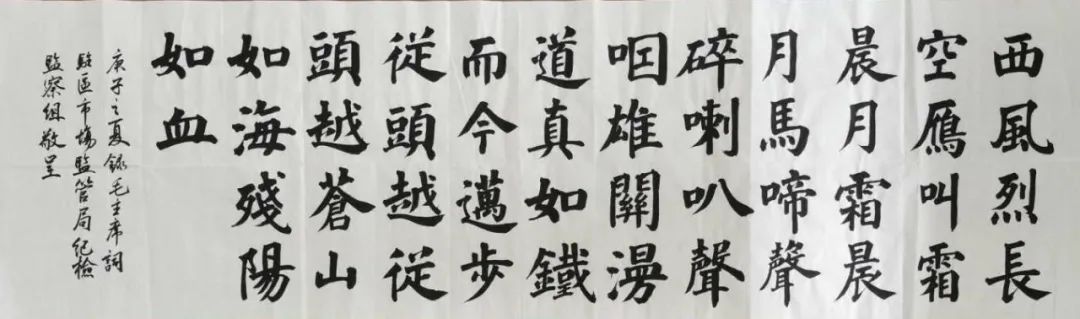 西風烈長
空鴈叫霜
晨月霜晨
月馬啼聲
碎喇叭聲
咽雄關漫
道真如鐵
而今邁步
從頭越從
頭越蒼山
如海殘陽
如血
庚子之夏錄毛主席詞
駐區市場監管局紀檢
監察組敬呈